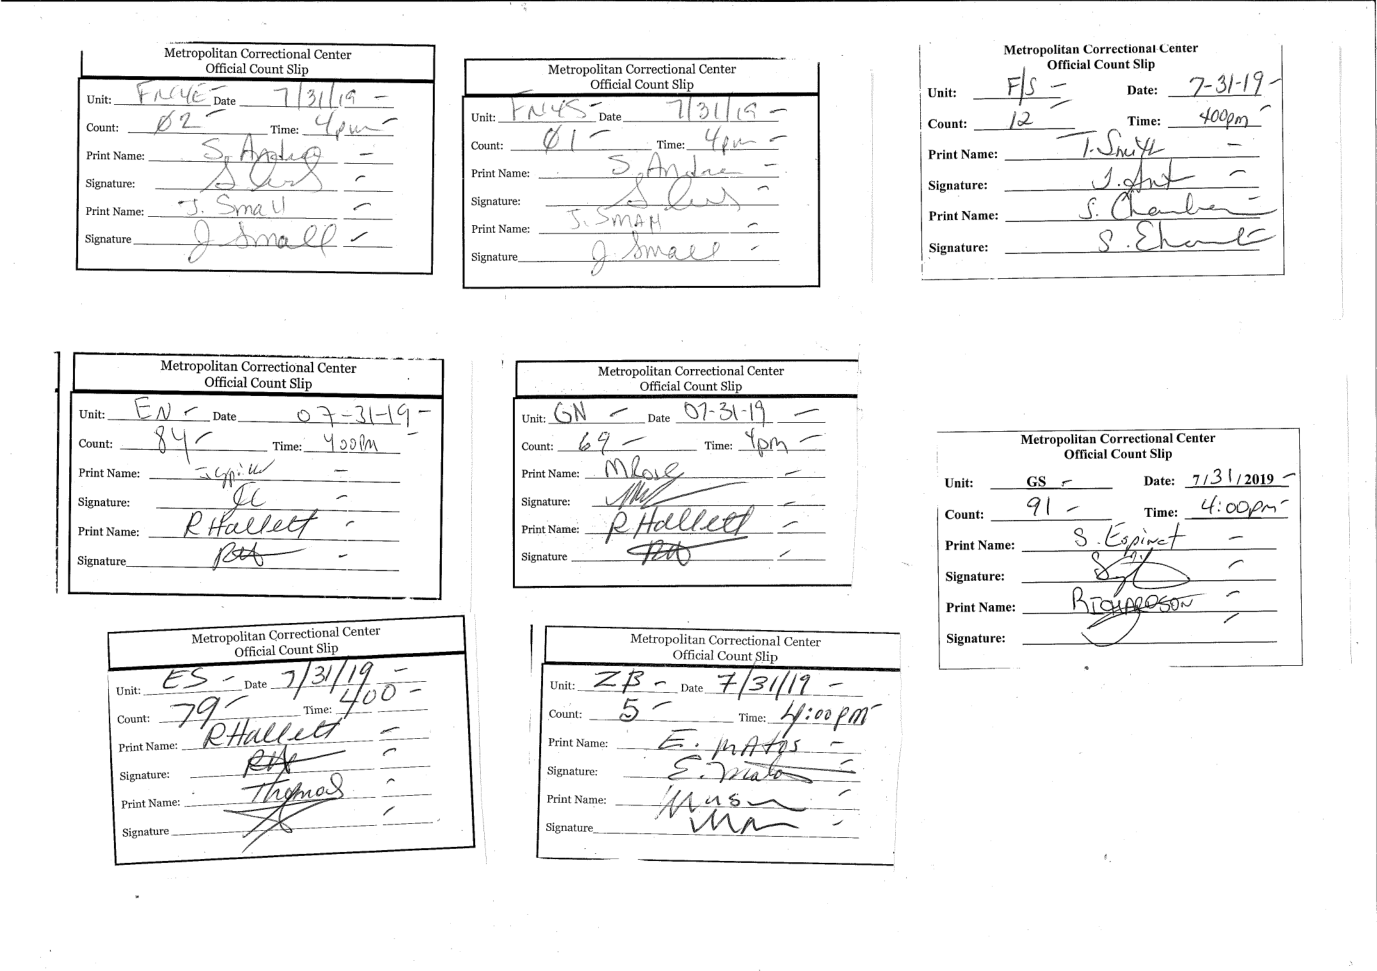 Metropolitan Correctional Center
Official Count Slip
Unit: FNYE Date 7/31/19 -
Count: Ø2 - Time: 4pm -
Print Name: S. -
Signature: -
Print Name: J. Small -
Signature J Small -
Metropolitan Correctional Center
Official Count Slip
Unit: FNYS - Date 7/31/19 -
Count: Ø1 - Time: 4pm -
Print Name: S. -
Signature: -
Print Name: J. SMAll -
Signature J. Small -
Metropolitan Correctional Center
Official Count Slip
Unit: F/S - Date: 7-31-19 -
Count: 12 - Time: 400pm -
Print Name: T. Smith -
Signature: -
Print Name: S. -
Signature: S. -
Metropolitan Correctional Center
Official Count Slip
Unit: EN - Date 07-31-19 -
Count: 84 - Time: 400PM -
Print Name: -
Signature: -
Print Name: R Hallett -
Signature -
Metropolitan Correctional Center
Official Count Slip
Unit: GN - Date 07-31-19 -
Count: 69 - Time: 4pm -
Print Name: -
Signature: -
Print Name: R Hallett -
Signature -
Metropolitan Correctional Center
Official Count Slip
Unit: GS - Date: 7/31/2019 -
Count: 91 - Time: 4:00pm -
Print Name: S. Espinet -
Signature: -
Print Name: RICHARDSON -
Signature: -
Metropolitan Correctional Center
Official Count Slip
Unit: ES - Date 7/31/19 -
Count: 79 - Time: 400 -
Print Name: RHallett -
Signature: -
Print Name: Thomas -
Signature -
Metropolitan Correctional Center
Official Count Slip
Unit: ZB - Date 7/31/19 -
Count: 5 - Time: 4:00pm -
Print Name: E. MAtos -
Signature: E. Matos -
Print Name: -
Signature -